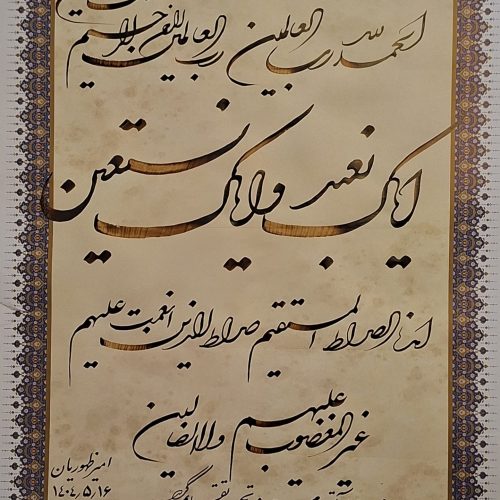 الحمد لله رب العالمین رب العالمین الرحمن الرحیم
ایاک نعبد وایاک نستعین
اهدنا الصراط المستقیم صراط الذین انعمت علیهم
غیر المغضوب علیهم ولا الضالین
امیر ظهوریان
۱۴۰۴٫۵٫۱۶